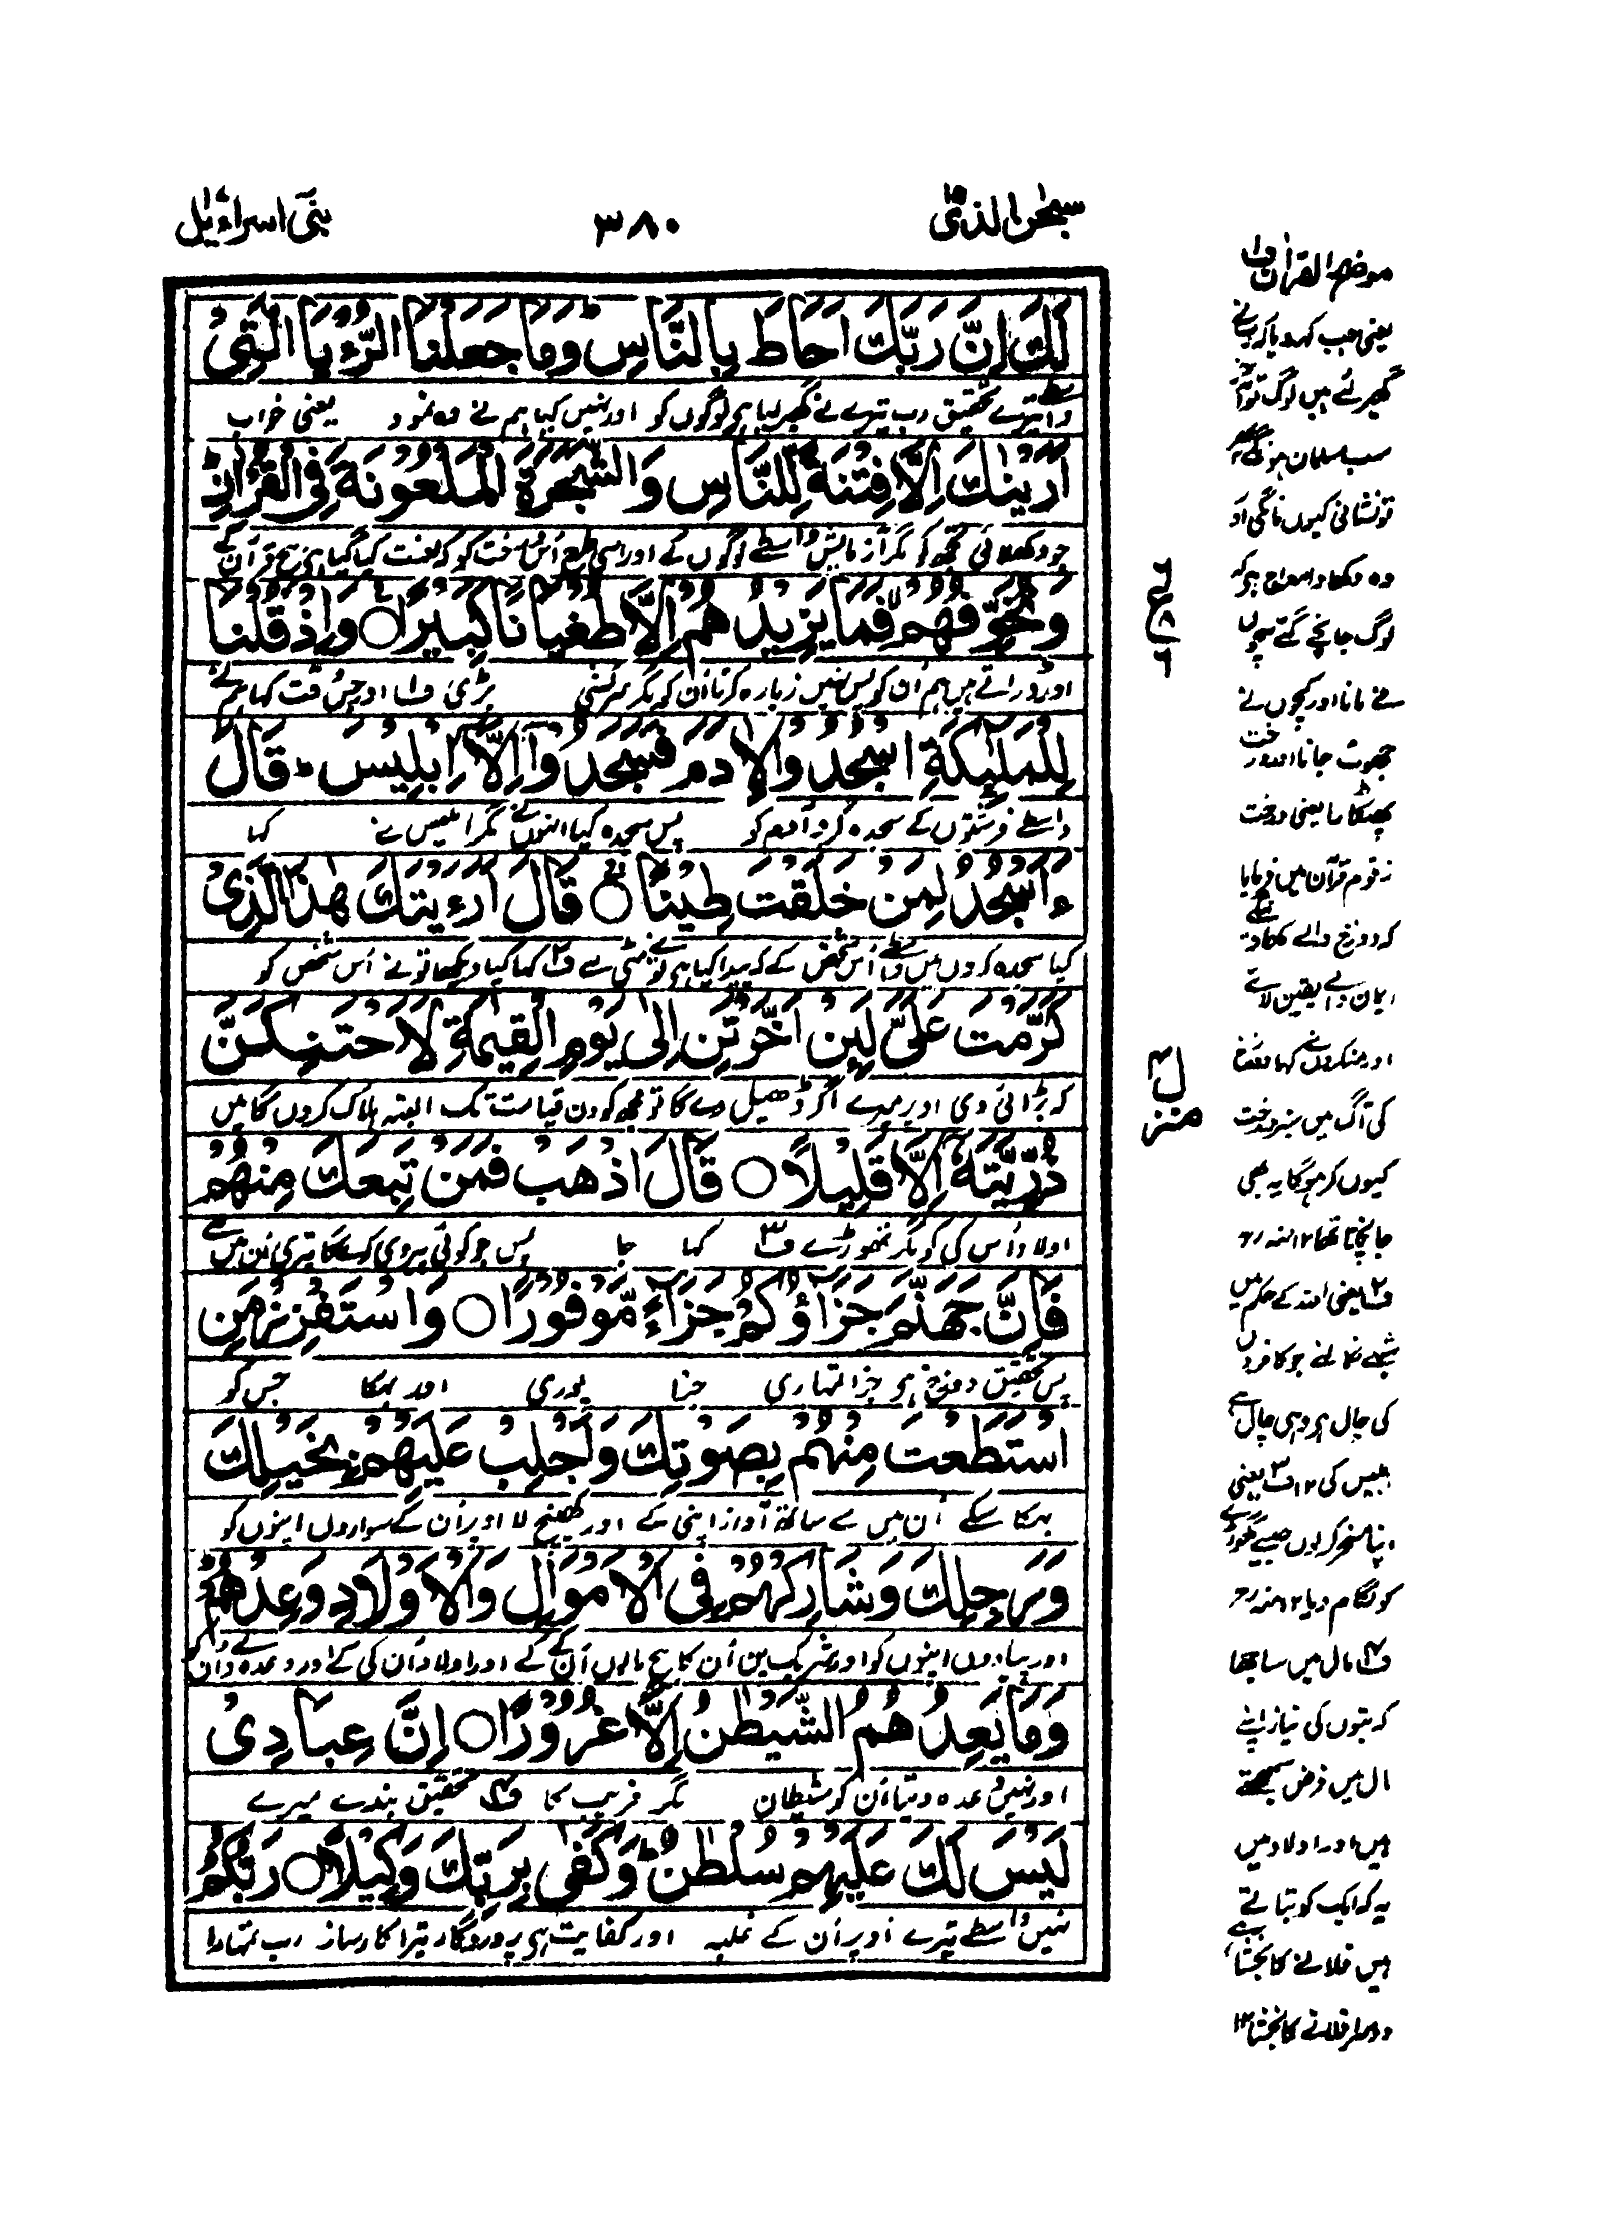 سبحٰن الذی ۱۵
۳۸۰
بنی اسراءیل
لَكَ اِنَّ رَبَّكَ اَحَاطَ بِالنَّاسِ ؕ وَمَا جَعَلْنَا الرُّءْيَا الَّتِيْ
واسطے تیرے تحقیق رب تیرے نے گھیر لیا ہی لوگوں کو اور نہیں کیا ہم نے وہ نمود یعنی خواب
اَرَيْنٰكَ اِلَّا فِتْنَةً لِّلنَّاسِ وَالشَّجَرَةَ الْمَلْعُوْنَةَ فِي الْقُرْاٰنِ ؕ
جو دکھلائی تجھ کو مگر آزمایش واسطے لوگوں کے اور اسی طرح اُس درخت کو کہ لعنت کیا گیا ہی بیچ قرآن کے
وَنُخَوِّفُهُمْ فَمَا يَزِيْدُهُمْ اِلَّا طُغْيَانًا كَبِيْرًا ○ وَاِذْ قُلْنَا
اور ڈراتے ہیں ہم اُن کو پس نہیں زیادہ کرتا اُن کو مگر سرکشی بڑی ف۱ اور جس وقت کہا ہم نے
لِلْمَلٰٓئِكَةِ اسْجُدُوْا لِاٰدَمَ فَسَجَدُوْٓا اِلَّآ اِبْلِيْسَ ؕ قَالَ
واسطے فرشتوں کے سجدہ کرو آدم کو پس سجدہ کیا انہوں نے مگر ابلیس نے کہا
ءَاَسْجُدُ لِمَنْ خَلَقْتَ طِيْنًا ○ قَالَ اَرَءَيْتَكَ هٰذَا الَّذِيْ
کیا سجدہ کروں میں واسطے اُس شخص کے کہ پیدا کیا ہی تو نے مٹی سے ف۲ کہا کیا دیکھا تو نے اُس شخص کو
كَرَّمْتَ عَلَيَّ لَئِنْ اَخَّرْتَنِ اِلٰى يَوْمِ الْقِيٰمَةِ لَاَحْتَنِكَنَّ
کہ بڑائی دی اوپر میرے اگر ڈھیل دے گا تو مجھ کو دن قیامت تک البتہ ہلاک کروں گا میں
ذُرِّيَّتَهٗٓ اِلَّا قَلِيْلًا ○ قَالَ اذْهَبْ فَمَنْ تَبِعَكَ مِنْهُمْ
اولاد اُس کی کو مگر تھوڑے ف۳ کہا جا پس جو کوئی پیروی کرے گا تیری اُن میں سے
فَاِنَّ جَهَنَّمَ جَزَآؤُكُمْ جَزَآءً مَّوْفُوْرًا ○ وَاسْتَفْزِزْ مَنِ
پس تحقیق دوزخ ہی جزا تمہاری جزا پوری اور بہکا جس کو
اسْتَطَعْتَ مِنْهُمْ بِصَوْتِكَ وَاَجْلِبْ عَلَيْهِمْ بِخَيْلِكَ
بہکا سکے اُن میں سے ساتھ آواز اپنی کے اور کھینچ لا اوپر اُن کے سواروں اپنوں کو
وَرَجِلِكَ وَشَارِكْهُمْ فِي الْاَمْوَالِ وَالْاَوْلَادِ وَعِدْهُمْ ؕ
اور پیادوں اپنوں کو اور شریک بن اُن کا بیچ مالوں اُن کے اور اولاد اُن کی کے اور وعدہ دے اُن کو
وَمَا يَعِدُهُمُ الشَّيْطٰنُ اِلَّا غُرُوْرًا ○ اِنَّ عِبَادِيْ
اور نہیں وعدہ دیتا اُن کو شیطان مگر فریب کا ف۴ تحقیق بندے میرے
لَيْسَ لَكَ عَلَيْهِمْ سُلْطٰنٌ ؕ وَكَفٰى بِرَبِّكَ وَكِيْلًا ○ رَبُّكُمُ
نہیں واسطے تیرے اوپر اُن کے غلبہ اور کفایت ہی پروردگار تیرا کارساز رب تمہارا
ع
منزل ۴
موضح القرآن ف۱
یعنی جب کہہ دیا کہ رب نے
گھیر لئے ہیں لوگ تو آخر
سب مسلمان ہونگے پھر
تو نشانی کیوں مانگی اور
وہ دکھاوا معراج ہی کہ
لوگ جانچے گئے سچوں
نے مانا اور کچوں نے
جھوٹ جانا اور درخت
پھٹکار یا یعنی درخت
زقوم قرآن میں فرمایا
کہ دوزخ والے کھاویں گے
ایمان والے یقین لائے
اور منکروں نے کہا دوزخ
کی آگ میں سبز درخت
کیوں کر ہوگا یہ بھی
جانچنا تھا ۱۲ منہ رح
ف۲ یعنی اللہ کے حکم میں
شبہے نکالنے جو کافروں
کی چال ہی وہی چال ہے
ابلیس کی ۱۲ ف۳ یعنی
اپنا مسخر کر لوں جیسے گھوڑے
کو لگام دیا ۱۲ منہ رح
ف۴ مال میں ساجھا
کہ بتوں کی نیاز اپنے
مال میں فرض سمجھتے
ہیں اور اولاد میں
یہ کہ ایک کو بتاتے
ہیں فلانے کا بخشا ہے
دوسرا فلانے کا بخشا ۱۲